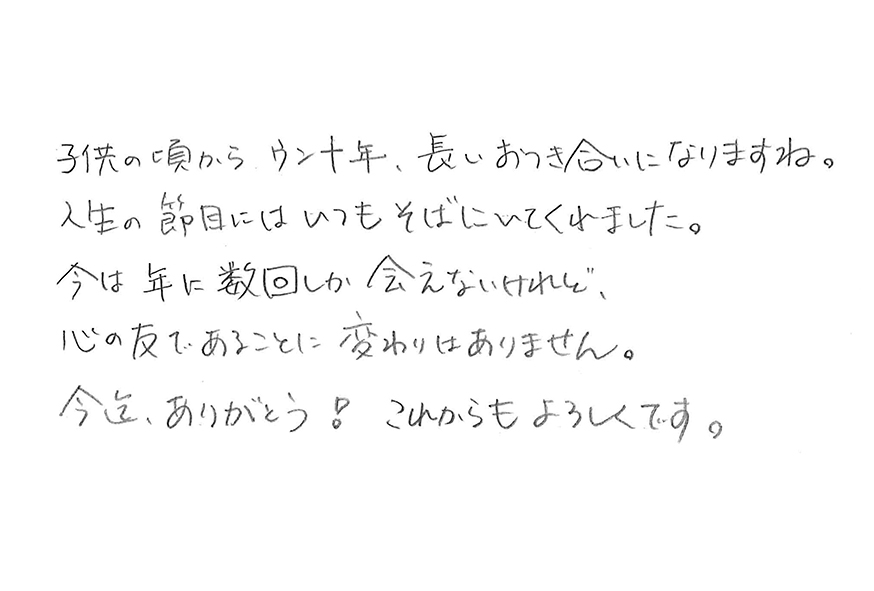 子供の頃から ウン十年、長いおつき合いになりますね。
人生の節目にはいつもそばにいてくれました。
今は年に数回しか会えないけれど、
心の友であることに変わりはありません。
今迄、ありがとう! これからもよろしくです。